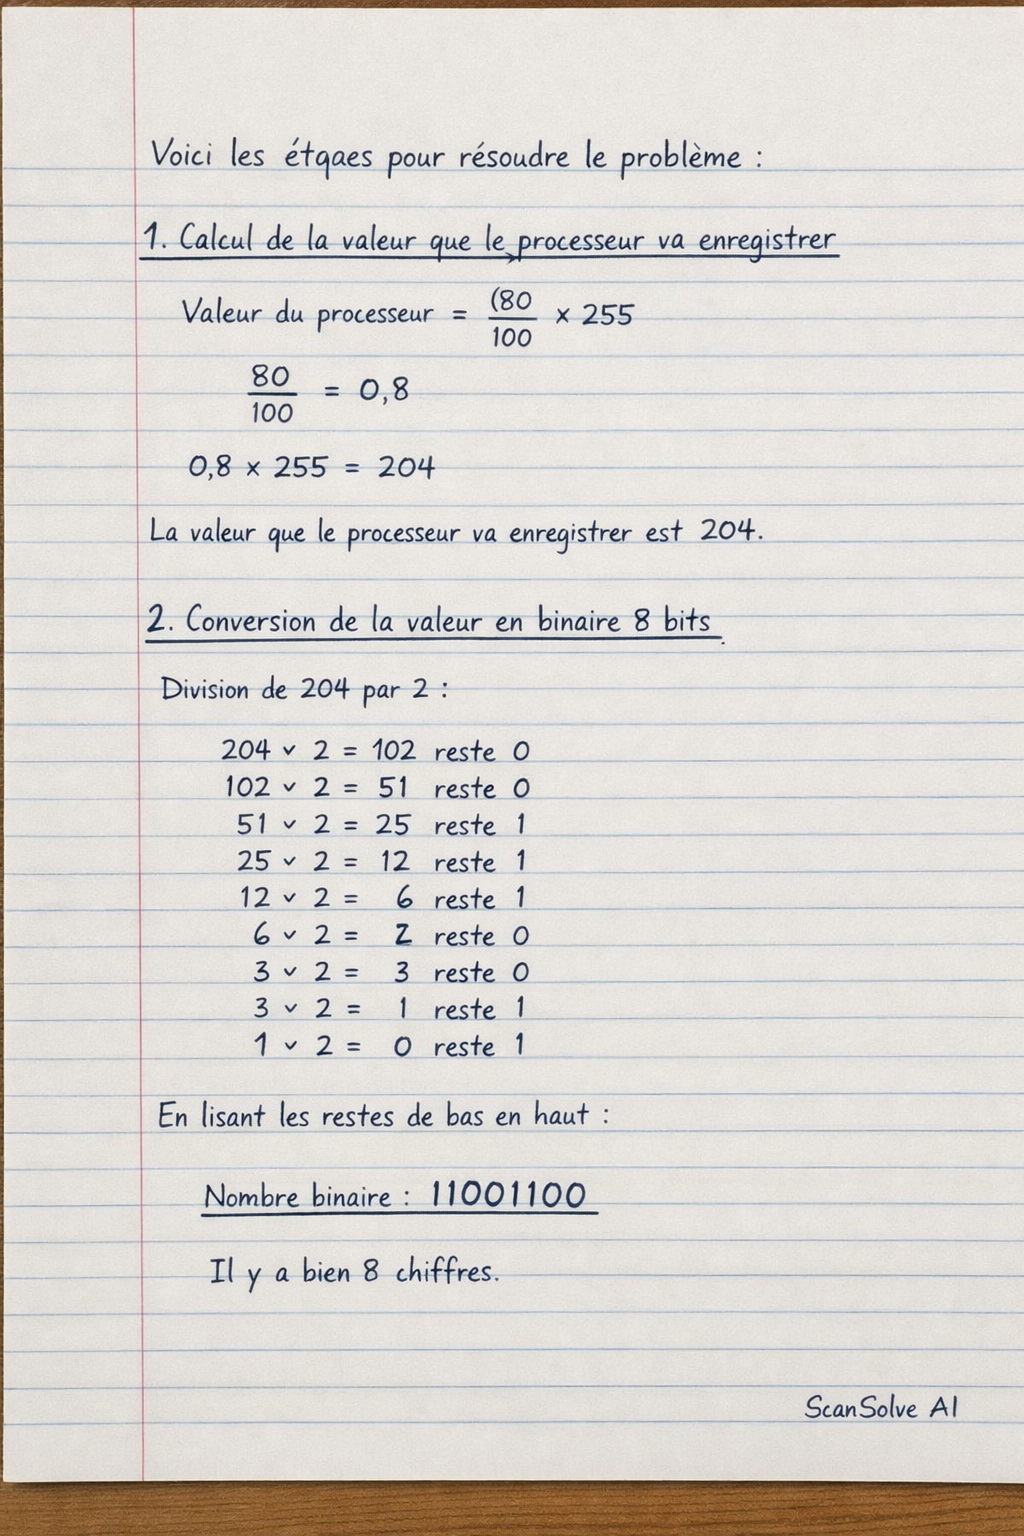 Voici les étqaes pour résoudre le problème :
1. Calcul de la valeur que le processeur va enregistrer
Valeur du processeur = (80/100 × 255
80/100 = 0,8
0,8 × 255 = 204
La valeur que le processeur va enregistrer est 204.
2. Conversion de la valeur en binaire 8 bits
Division de 204 par 2 :
204 ˅ 2 = 102 reste 0
102 ˅ 2 = 51 reste 0
51 ˅ 2 = 25 reste 1
25 ˅ 2 = 12 reste 1
12 ˅ 2 = 6 reste 1
6 ˅ 2 = 2 reste 0
3 ˅ 2 = 3 reste 0
3 ˅ 2 = 1 reste 1
1 ˅ 2 = 0 reste 1
En lisant les restes de bas en haut :
Nombre binaire : 11001100
Il y a bien 8 chiffres.
ScanSolve AI